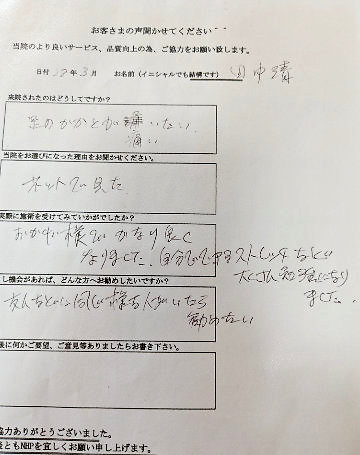 お客さまの声聞かせてください
当院のより良いサービス、品質向上の為、ご協力をお願い致します。
日付 29年3月 お名前(イニシャルでも結構です)
来院されたのはどうしてですか?
かかとが痛い
当院をお選びになった理由をお聞かせください。
ネットで見た
実際に施術を受けてみていかがでしたか?
おかげ様でかなり良く
なりました。自分でできるストレッチなども
たくさん勉強になり
ました。
し機会があれば、どんな方へお勧めしたいですか?
友人などに同じ様な人がいたら
勧めたい
後に何かご要望、ご意見等ありましたらお書き下さい。
協力ありがとうございました。
後ともNHPを宜しくお願い申し上げます。